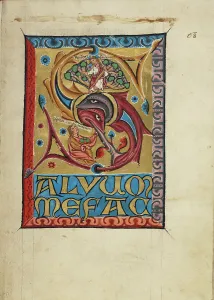 S
ALVUM
MEFAC